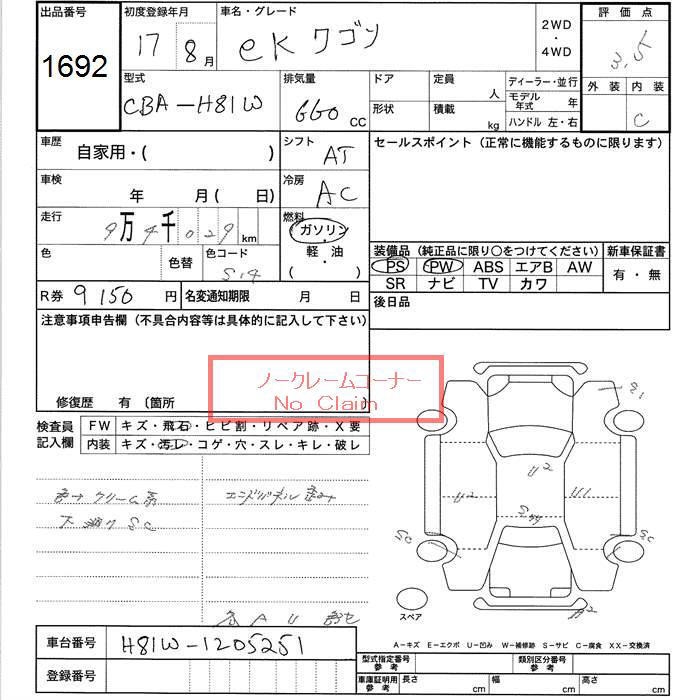 出品番号
1692
初度登録年月
17 8月
車名・グレード
eKワゴン
2WD
・
4WD
評価点
3.5
型式
CBA-H81W
排気量
660 cc
ドア
形状
定員 人
積載 kg
ディーラー・並行
モデル年式 年
ハンドル 左・右
外装 内装
C
車歴
自家用・( )
シフト
AT
セールスポイント(正常に機能するものに限ります)
車検
年 月( 日)
冷房
AC
走行
9万4千029km
燃料
ガソリン
・
軽・油
( )
色
色替
色コード
S14
装備品(純正品に限り○をつけてください)
新車保証書
PS PW ABS エアB AW
有・無
SR ナビ TV カワ
R券 9150円
名変通知期限 月 日
後日品
注意事項申告欄(不具合内容等は具体的に記入して下さい)
ノークレームコーナー
No Claim
修復歴 有(箇所 )
検査員
記入欄
FW キズ・飛石・ヒビ割・リペア跡・X要
内装 キズ・汚レ・コゲ・穴・スレ・キレ・破レ
クリーム系
エンドパネル歪み
下 SC
各 A U
U2
U2
U1
SC
SC
A2
スペア
A-キズ E-エクボ U-凹み W-補修跡 S-サビ C-腐食 XX-交換済
車台番号
H81W-1205251
登録番号
型式指定番号
参考
類別区分番号
参考
車庫証明用
参考
長さ cm
幅 cm
高さ cm